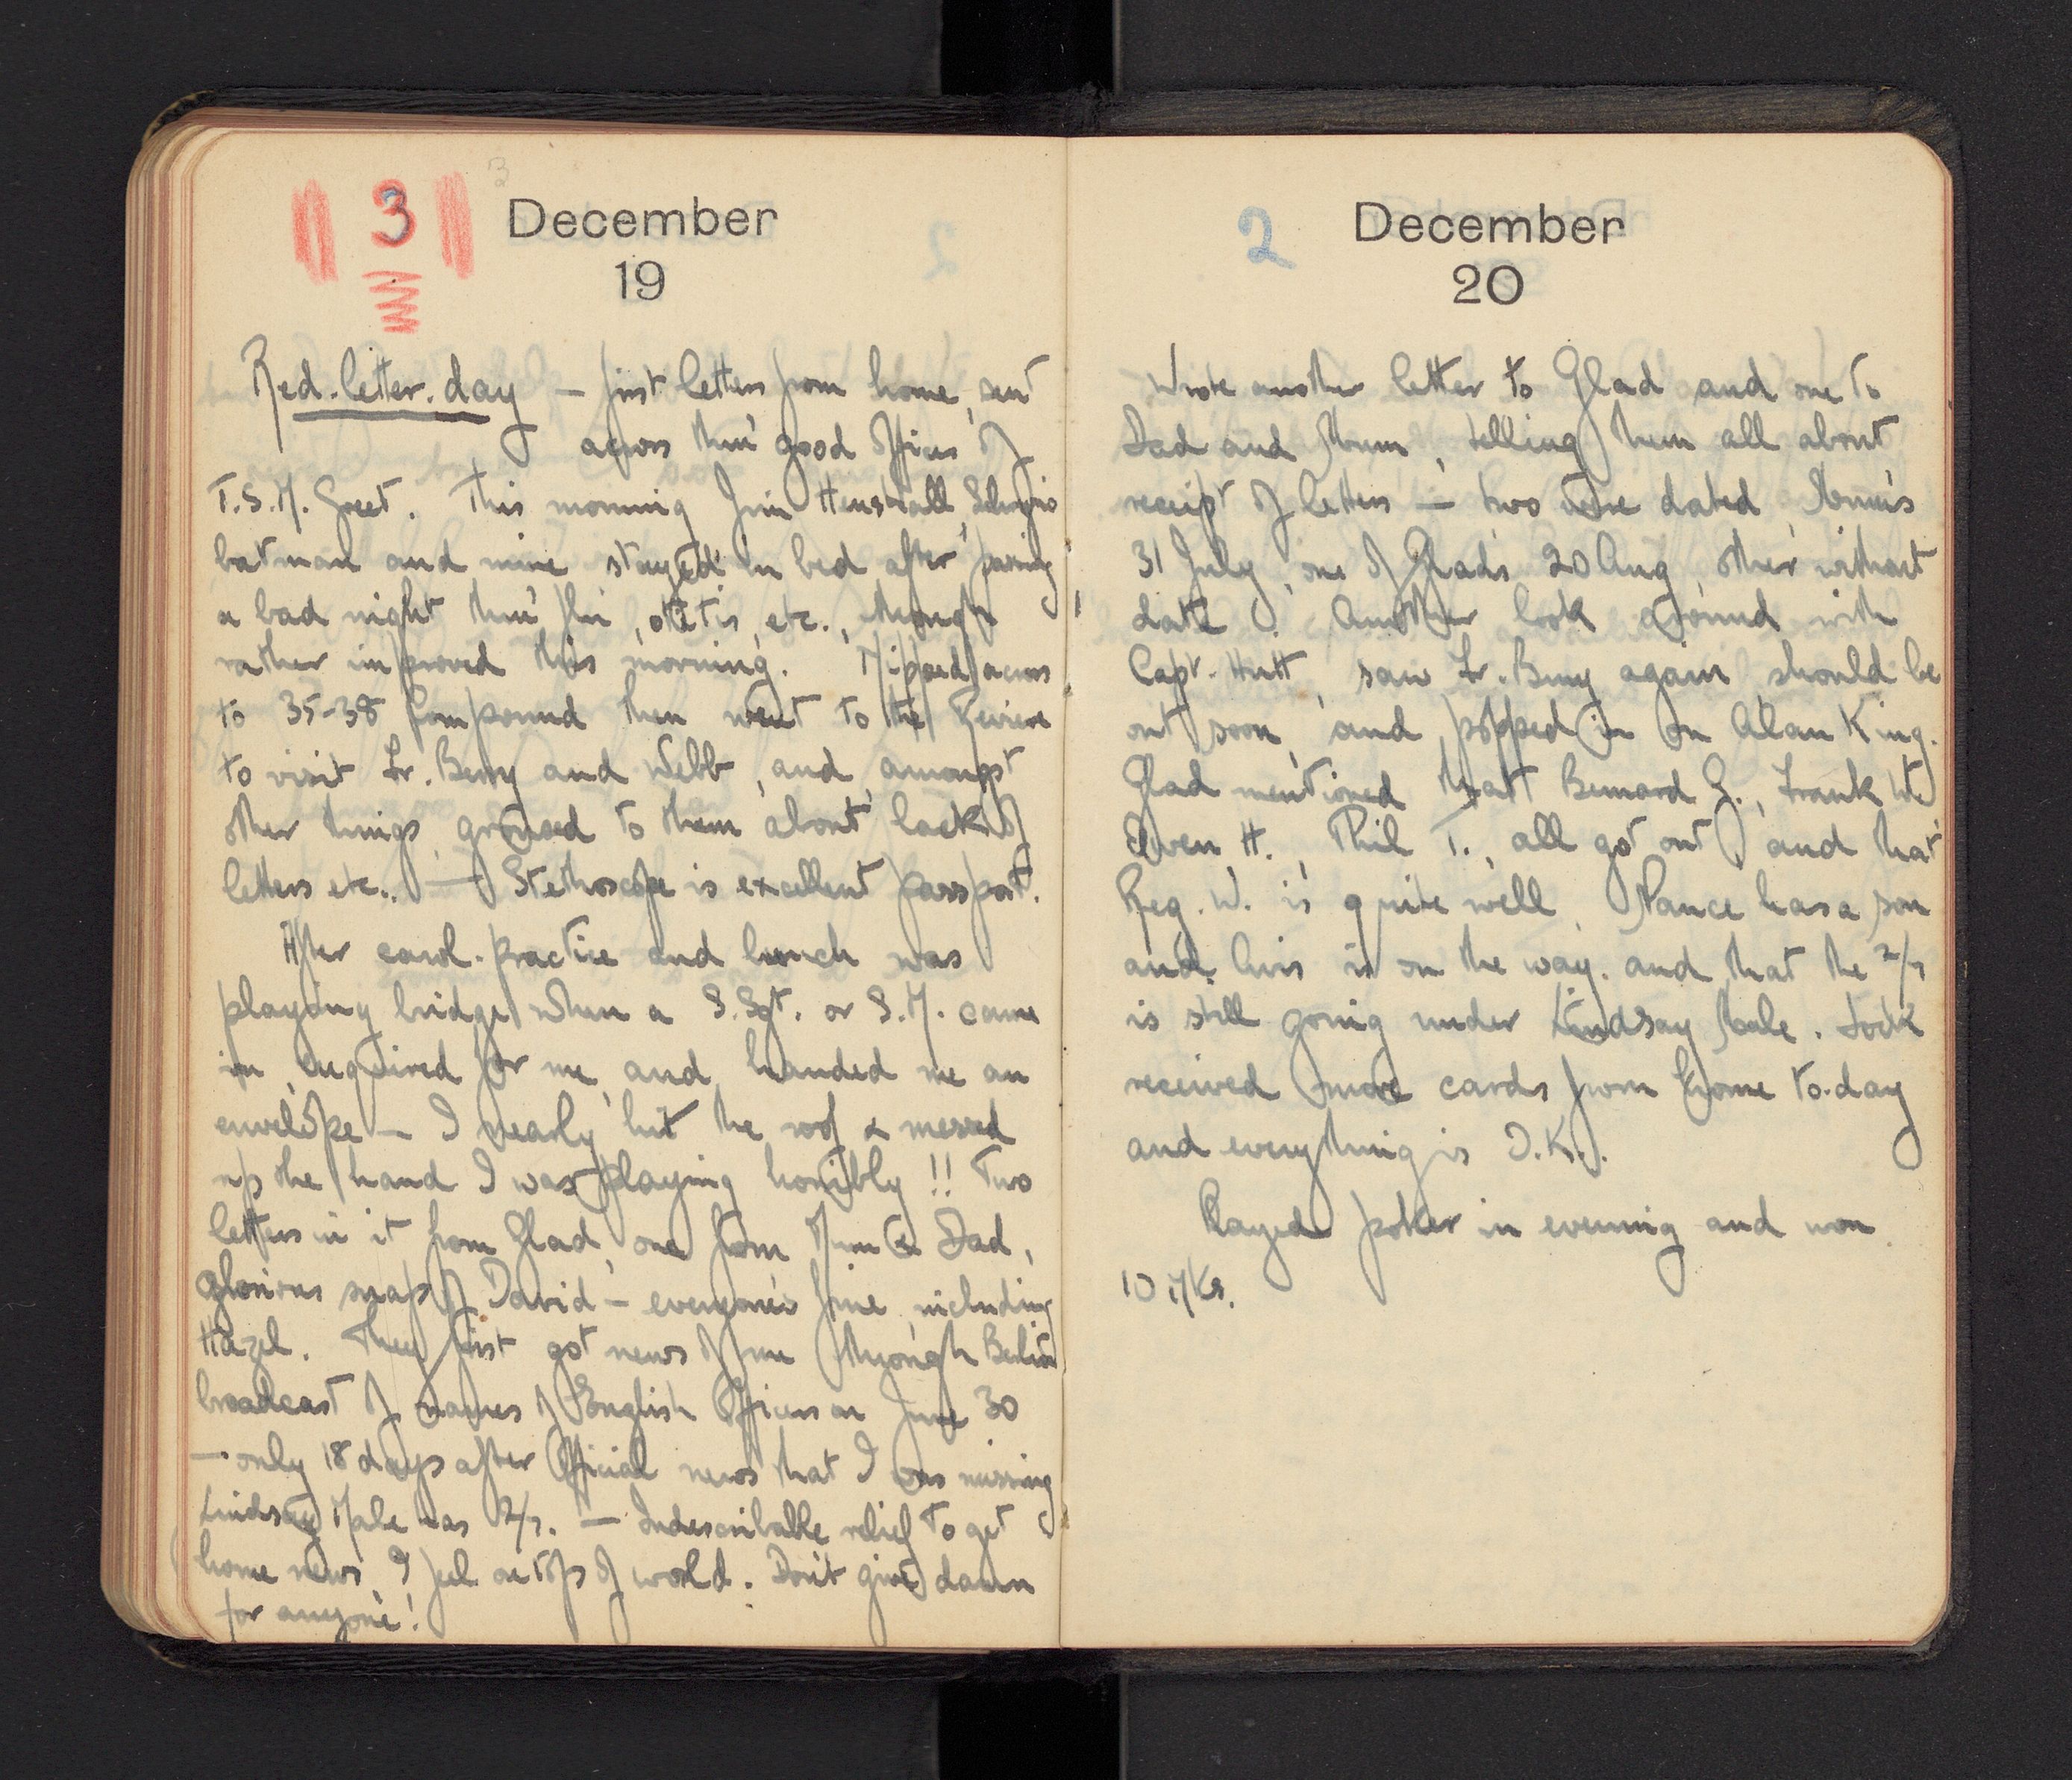 3
December
19
Red.letter.day – first letters from home, sent
across thro' good offices of
T.S.M. Greet. This morning Jim Henshall,
batman and mine stayed in bed after passing
a bad night thro' flu, otitis, etc., though
rather improved this morning. Nipped across
to 35-38 Compound then went to the Revier
to visit Fr. Berry and Webb, and, amongst
other things, groused to them about lack of
letters etc.. — Stethoscope is excellent passport.
After carol-practice and lunch was
playing bridge when a S.Sgt. or S.M. came
in, enquired for me, and handed me an
envelope – I nearly hit the roof & messed
up the hand I was playing horribly!! Two
letters in it from Glad, one from Mum & Dad,
glorious snap of David – everyone's fine, including
Hazel. They first got news of me through Berlin
broadcast of names of English Officers on June 30
– only 18 days after Official news that I was missing
Lindsay Male was 2/7. – Indescribable relief to get
home news, I feel on top of world. Don't give damn
for anyone!
2
December
20
Wrote another letter to Glad and one to
Dad and Mum, telling them all about
receipt of letters – two were dated, Mum's
31 July, one of Glad's 20 Aug, other without
date. Another look around with
Capt. Hutt, saw Fr. Berry again should be
out soon, and popped in on Alan King.
Glad mentioned that Bernard G., Frank W.
Owen H., Phil T., all got out, and that
Reg. W. is quite well. Nance has a son
and. is on the way. and that the 2/7
is still going under Lindsay Male. Jock
received more cards from home to-day
and everything is O.K..
Played poker in evening and won
10 Mks.